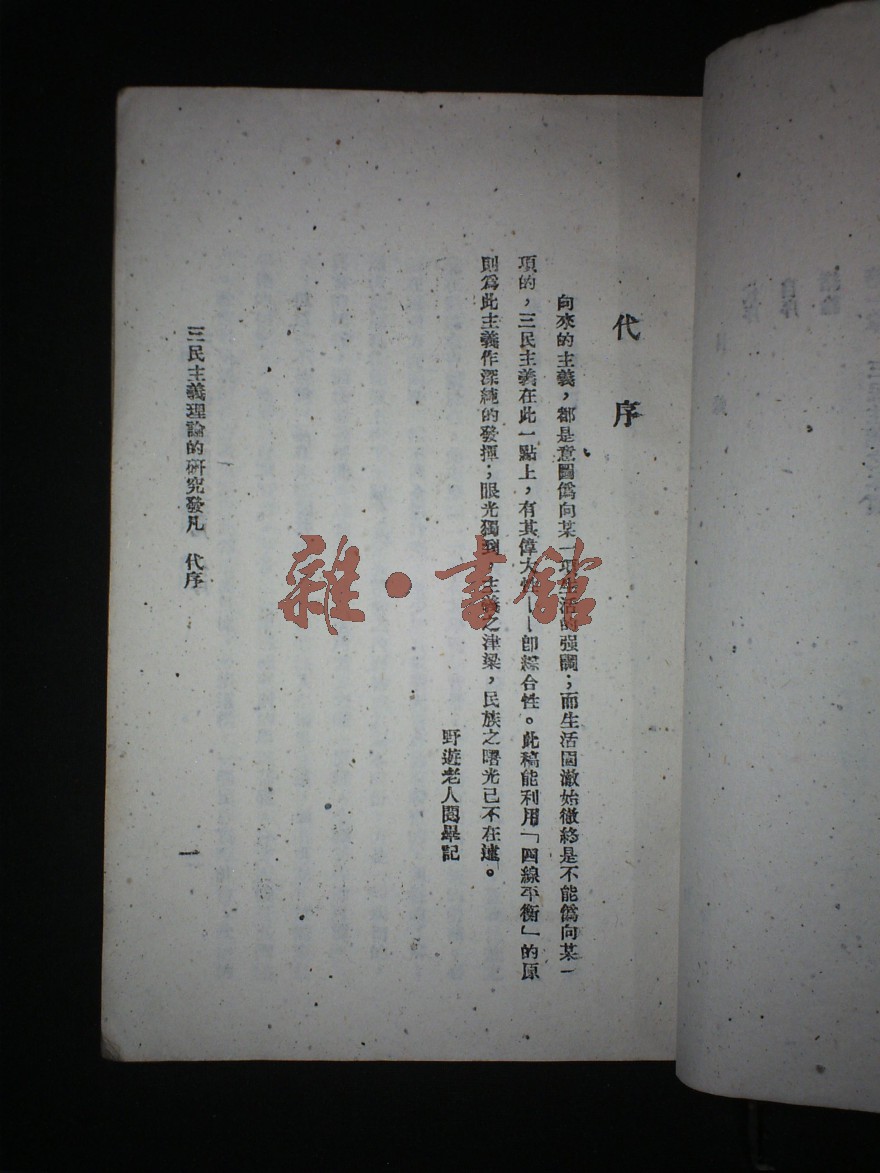 代序
向來的主義，都是意圖偏向某一項生活的強調；而生活固澈始徹終是不能偏向某一
項的，三民主義在此一點上，有其偉大性——即綜合性。此稿能利用「四線平衡」的原
則為此主義作深純的發揮；眼光獨到，主義之津梁，民族之曙光已不在遠。
野遊老人閱畢記
三民主義理論的研究發凡　代序
一
雜·書館
自序